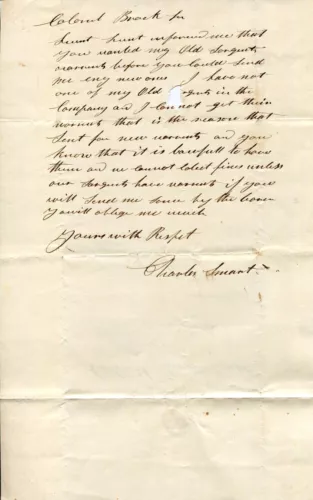 Colonel Brock Sir
Hunt informed me that
you wanted my Old Sergents
warrents before you Could Send
me eny new ones I have not
one of my Old Sergents in the
Company and I Cannot get their
warrents that is the reason that
Sent for new warrents and you
know that it is to have
them and we cannot Colect fines unless
our Sergents have warrents if you
will Send me Some by the
you will oblige me much
Yours with Respet
Charles Smart